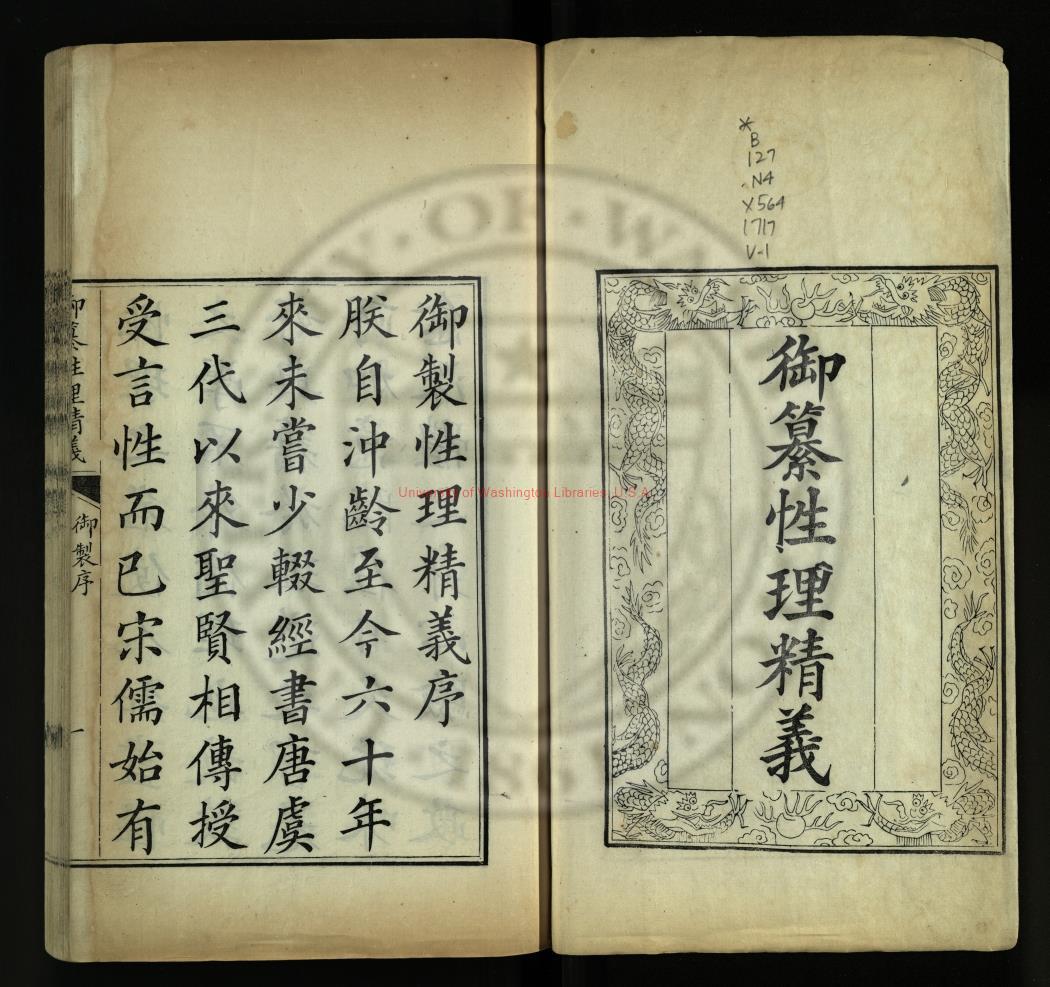 御纂性理精義
*
B
127
.N4
X564
1717
V-1
御製性理精義序
朕自沖齡至今六十年
來未嘗少輟經書唐虞
三代以來聖賢相傳授
受言性而已宋儒始有
御纂性理精義
御製序
一
University of Washington Libraries, U.S.A.